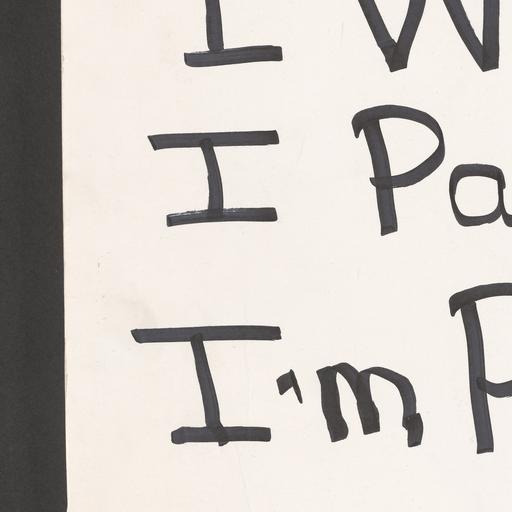 I W
I Pa
I'm P